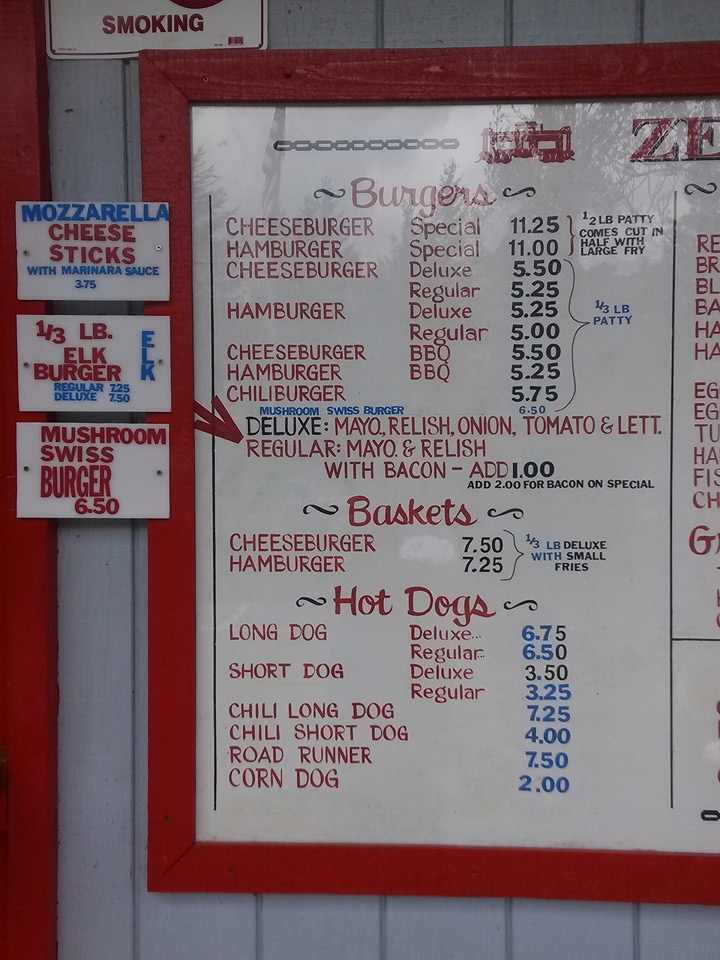 SMOKING
MOZZARELLA
CHEESE
STICKS
WITH MARINARA SAUCE
3.75
1/3 LB.
ELK
BURGER
REGULAR 7.25
DELUXE 7.50
ELK
MUSHROOM
SWISS
BURGER
6.50
ZE
Burgers
CHEESEBURGER Special 11.25
HAMBURGER Special 11.00
1/2 LB PATTY
COMES CUT IN
HALF WITH
LARGE FRY
CHEESEBURGER Deluxe 5.50
Regular 5.25
HAMBURGER Deluxe 5.25
Regular 5.00
CHEESEBURGER BBQ 5.50
HAMBURGER BBQ 5.25
CHILIBURGER 5.75
MUSHROOM SWISS BURGER 6.50
1/3 LB
PATTY
DELUXE: MAYO, RELISH, ONION, TOMATO & LETT.
REGULAR: MAYO. & RELISH
WITH BACON - ADD 1.00
ADD 2.00 FOR BACON ON SPECIAL
Baskets
CHEESEBURGER 7.50
HAMBURGER 7.25
1/3 LB DELUXE
WITH SMALL
FRIES
Hot Dogs
LONG DOG Deluxe... 6.75
Regular.. 6.50
SHORT DOG Deluxe 3.50
Regular 3.25
CHILI LONG DOG 7.25
CHILI SHORT DOG 4.00
ROAD RUNNER 7.50
CORN DOG 2.00
RE
BR
BL
BA
HA
HA
EG
EG
TU
HA
FIS
CH
Gr